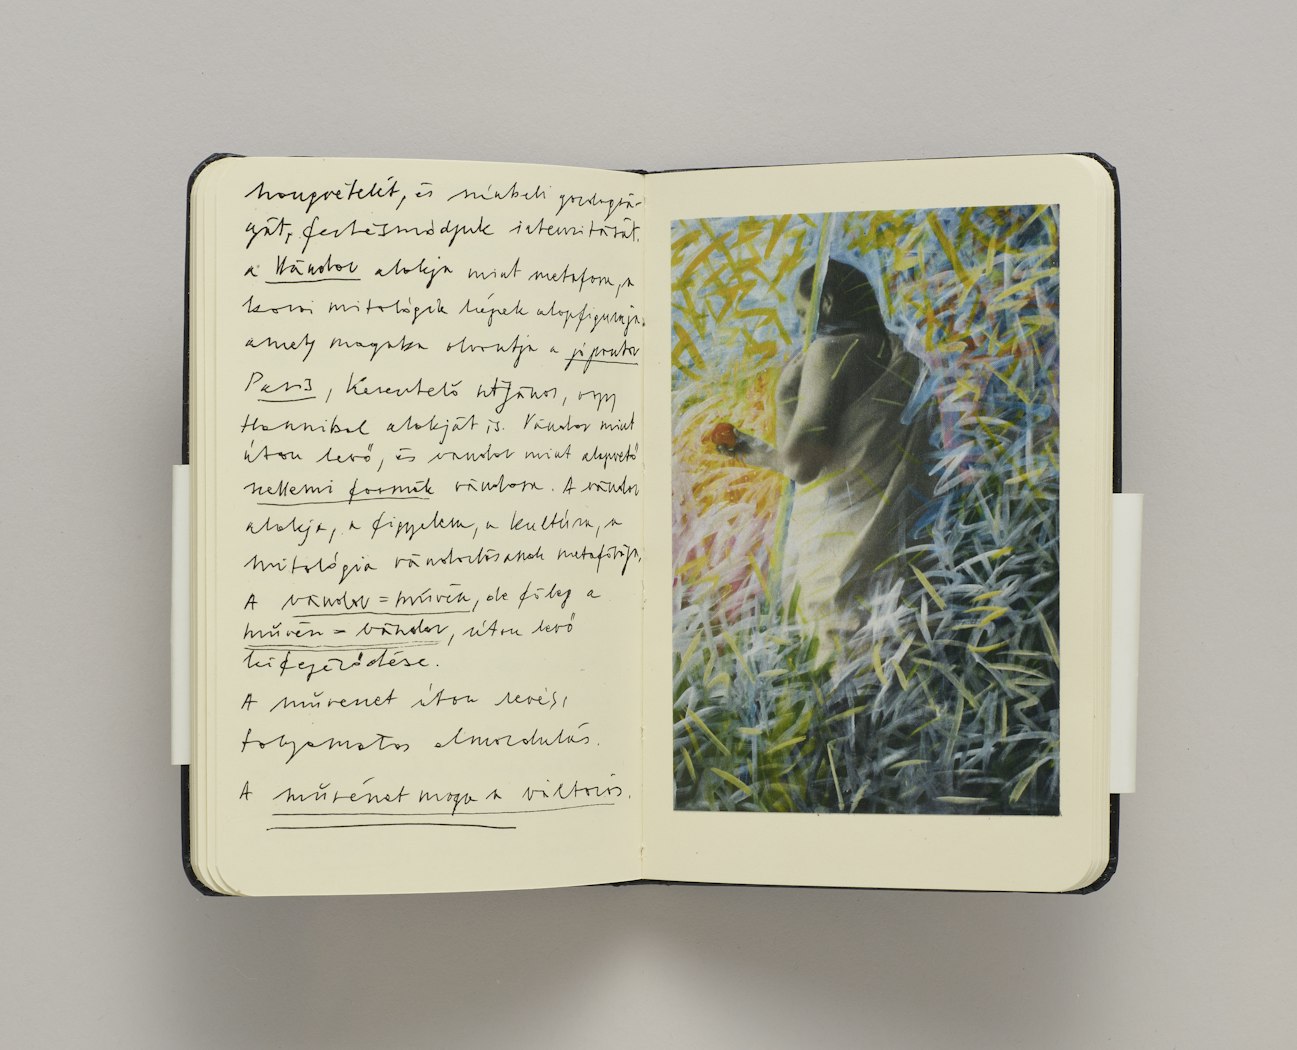 hangvételét, és színbeli gazdagsá-
gát, festésmódjuk intenzitását.
a Vándor alakja mint metafora, a
korai mitológik képek alapfigurája,
amely magába olvasztja a
Paris, Keresztelő János, vagy
Hannibal alakját is. Vándor mint
úton levő, és vándor mint alapvető
szellemi formák vándora. A vándor
alakja, a figyelem, a kultúra, a
mitológia vándorlásának metaforája.
A vándor = művész, de főleg a
művész = vándor, úton levő
kifejeződése.
A művészet úton levés,
folyamatos elmozdulás.
A művészet maga a változás.